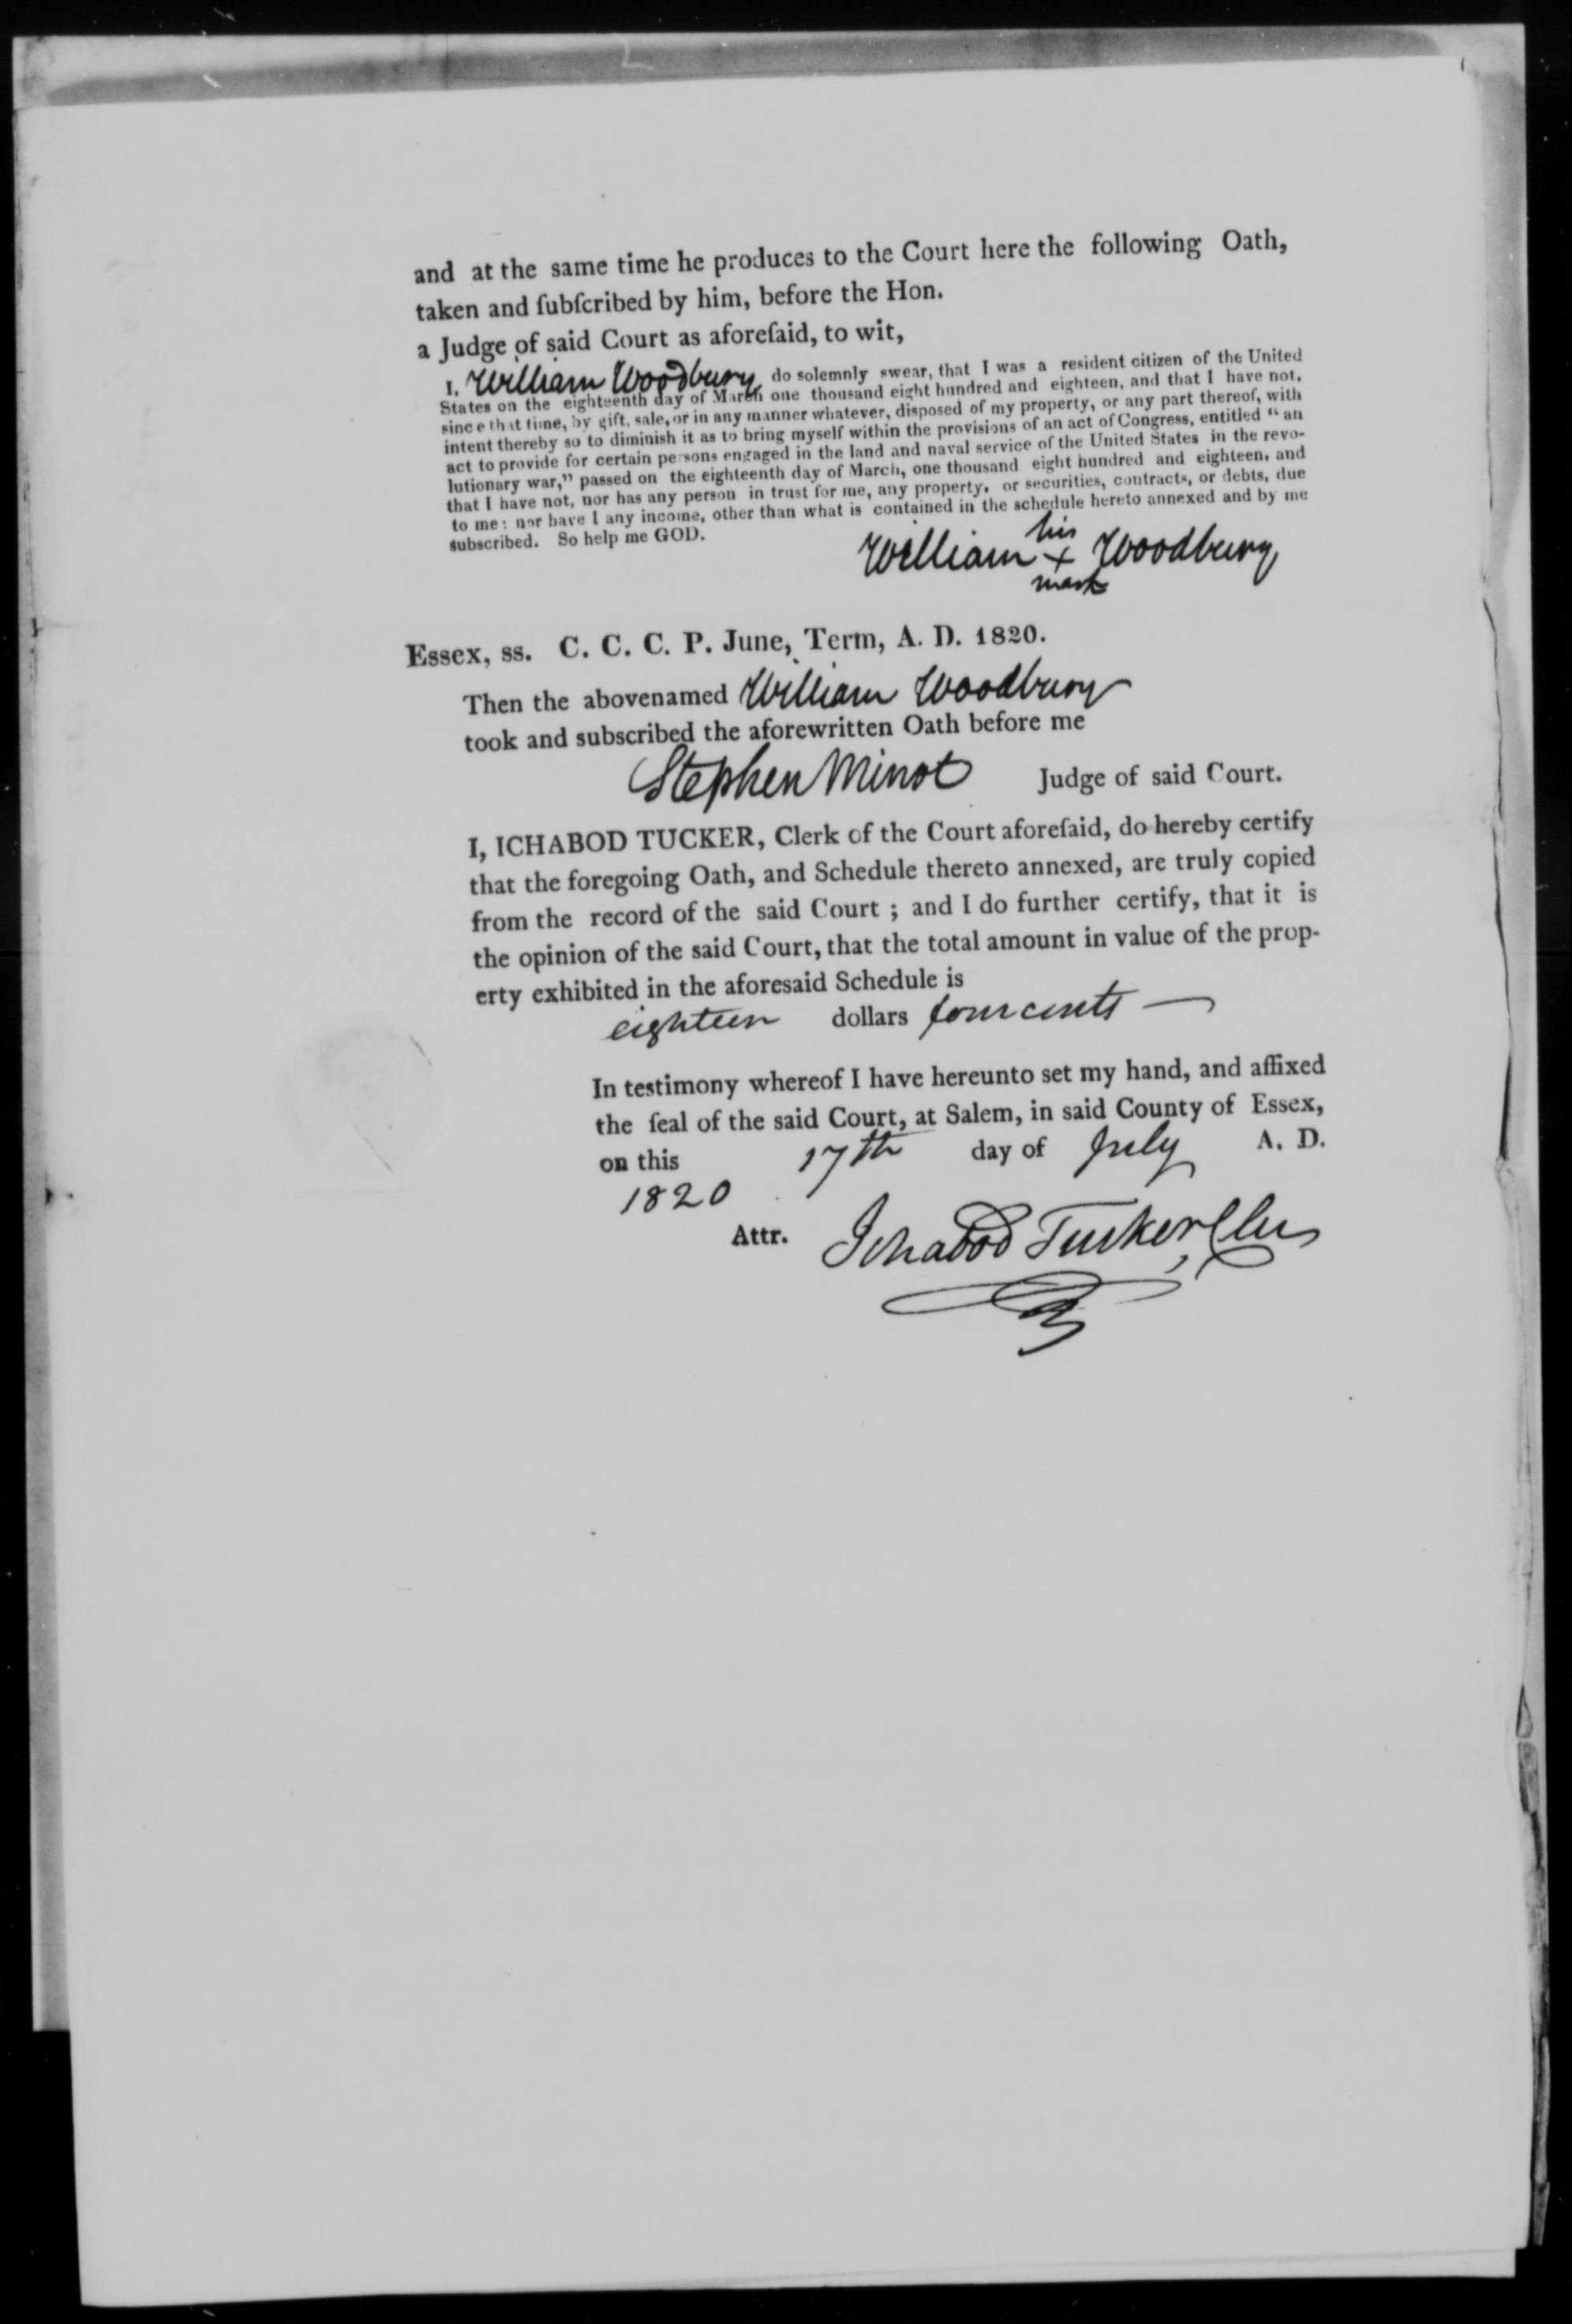 and at the same time he produces to the Court here the following Oath,
taken and ſubſcribed by him, before the Hon.
a Judge of said Court as aforeſaid, to wit,
I, William Woodbury do solemnly swear, that I was a resident citizen of the United
States on the eighteenth day of March one thousand eight hundred and eighteen, and that I have not,
since that time, by gift, sale, or in any manner whatever, disposed of my property, or any part thereof, with
intent thereby so to diminish it as to bring myself within the provisions of an act of Congress, entitled "an
act to provide for certain persons engaged in the land and naval service of the United States in the revo-
lutionary war," passed on the eighteenth day of March, one thousand eight hundred and eighteen, and
that I have not, nor has any person in trust for me, any property, or securities, contracts, or debts, due
to me; nor have I any income, other than what is contained in the schedule hereto annexed and by me
subscribed. So help me GOD.
his
William + Woodbury
mark
Essex, ss. C. C. C. P. June, Term, A. D. 1820.
Then the abovenamed William Woodbury
took and subscribed the aforewritten Oath before me
Stephen Minot Judge of said Court.
I, ICHABOD TUCKER, Clerk of the Court aforeſaid, do hereby certify
that the foregoing Oath, and Schedule thereto annexed, are truly copied
from the record of the said Court ; and I do further certify, that it is
the opinion of the said Court, that the total amount in value of the prop-
erty exhibited in the aforesaid Schedule is
eighteen dollars four cents —
In testimony whereof I have hereunto set my hand, and affixed
the ſeal of the said Court, at Salem, in said County of Essex,
on this 17th day of July A. D.
1820
Attr. Ichabod Tucker, Cler